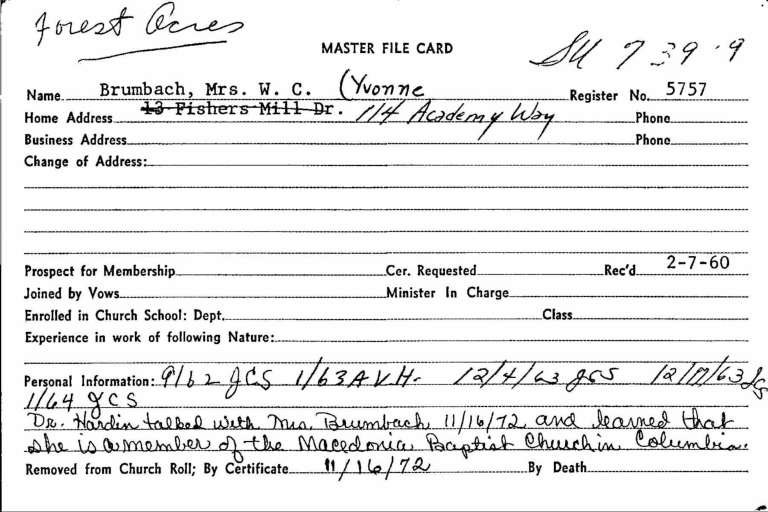 Forest Acres
MASTER FILE CARD
SU 7 39 9
Name Brumbach, Mrs. W. C. (Yvonne Register No. 5757
Home Address 13 Fishers Mill Dr. 114 Academy Way Phone
Business Address Phone
Change of Address:
Prospect for Membership Cer. Requested Rec'd 2-7-60
Joined by Vows Minister In Charge
Enrolled in Church School: Dept. Class
Experience in work of following Nature:
Personal Information: 9/62 JCS 1/63 AVH- 12/4/63 JCS 12/17/63 JCS
1/64 JCS
Dr. Hardin talked with Mrs. Brumbach 11/16/72 and learned that
she is a member of the Macedonia Baptist Church in Columbia.
Removed from Church Roll; By Certificate 11/16/72 By Death